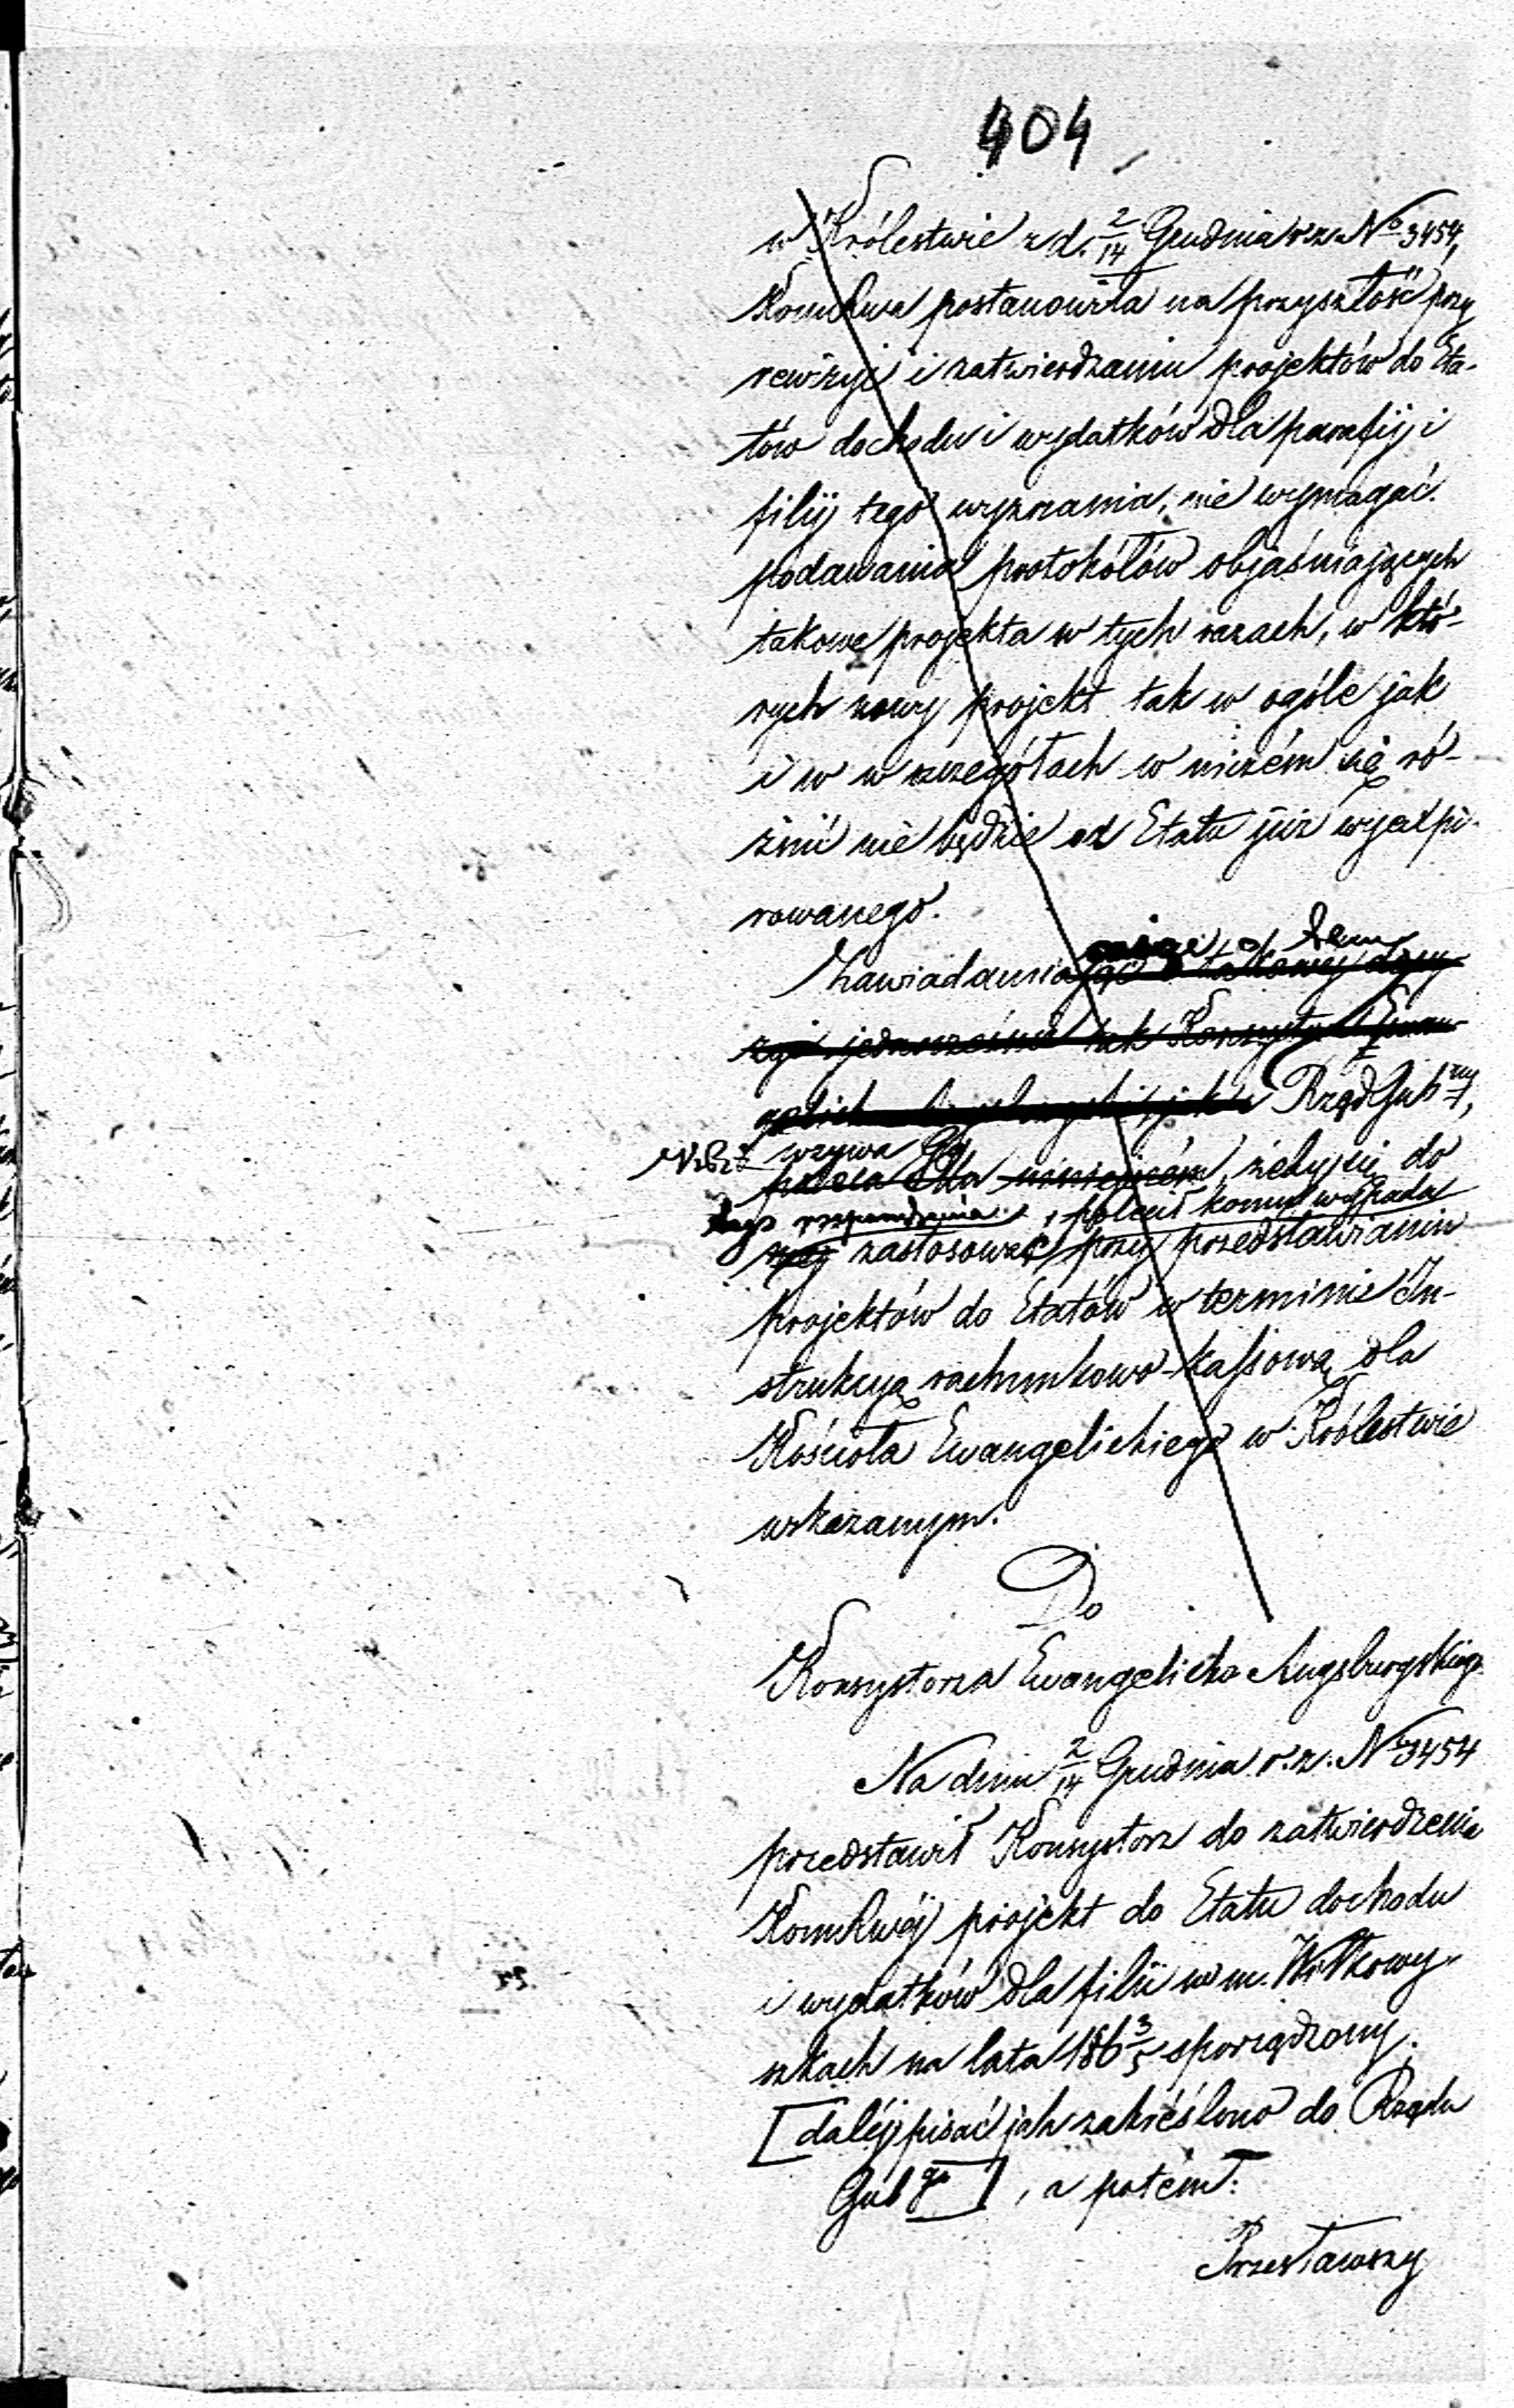 404
w Królestwie z d. 2/14 Grudnia r. z. No 3454,
KomRwa postanowiła na przyszłość przy
rewizyi i zatwierdzaniu projektów do Eta-
tów dochodu i wydatków dla parafij i
filij tego wyznania, nie wymagać
podawania protokółów objaśniających
takowe projekta w tych razach, w któ-
rych nowy projekt tak w ogóle jak
i w szczegółach w niczém się ró-
żnić nie będzie od Etatu już wyexpi-
rowanego.
Zawiadamiając o takowej decy
zyi jednocześnie tak Konsystorz Ewan-
gelicko Augsburgski, jak i Rząd Gubny,
wzywa Go
poleca Mu żeby się do
tego rozporządzenia, polecił komu wypada
zastosować przy przedstawianiu
projektów do Etatów w terminie In-
strukcyą rachunkowo-kassową dla
Kościoła Ewangelickiego w Królestwie
wskazanym.
Do
Konsystorza Ewangelicko Augsburgskiego
Na dniu 2/14 Grudnia r. z. No 3454
przedstawił Konsystorz do zatwierdzenia
KomRwéj projekt do Etatu dochodu
i wydatków dla filii w m. Wiłkowy-
szkach na lata 186 3/5 sporządzony.
[daléj pisać jak zakréślono do Rządu
Gubgo], a potém:
Przesławszy